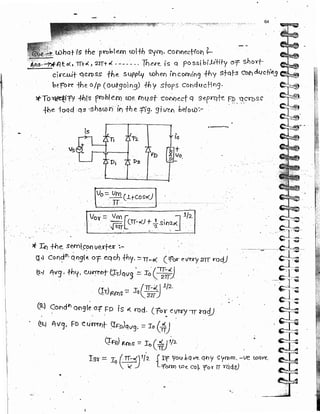 64
Que → What is the problem with sym. connection ?
Ans → At α, π+α, 2π+α ------- There is a possibility of short-
circuit across the supply when incoming thy stats conducting
before the o/p (outgoing) thy stops conducting.
* To rectify this problem we must connect a seprate FD across
the load as shown in the fig. given below:-
is
T1 T2 io
Vs FD + Vo
D1 D2
Vo = Vm/π (1+cosα)
Vor = Vm/√2π [(π-α) + 1/2 sin2α]^1/2
* In the semiconverter :-
(a) Condⁿ angle of each thy. = π-α (for every 2π rad)
(b) Avg. thy. current (IT)avg = Io (π-α/2π)
(IT)RMS = Io (π-α/2π)^1/2.
(2) Condⁿ angle of FD is α rad. (for every π rad)
(b) Avg. FD current (IFD)avg. = Io (α/π)
(IFD) RMS = Io (α/π)^1/2
Isr = Io (π-α/π)^1/2 { If you have any symm. -ve wave
form we cal for π rads)